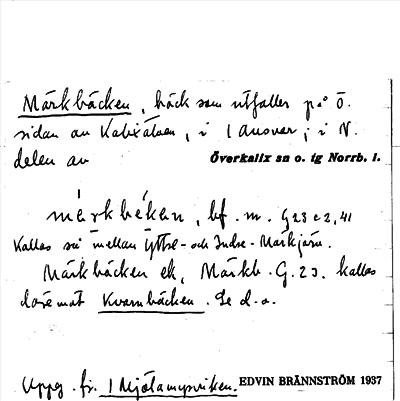 Märkbäcken, bäck som utfaller på ö.
sidan av Kalixälven, i 1 Ansvar, i N.
delen av Överkalix sn o. tg Norrb. l.
mérkbékan, bf. m. G 23 c 2, 41
Kallas så mellan Yttre- och Indre-Märkjärn.
Märkbäcken ek, Märkb. G. 23. kallas
Kvarnbäcken. Se d.o.
Uppg. fr. 1 EDVIN BRÄNNSTRÖM 1937